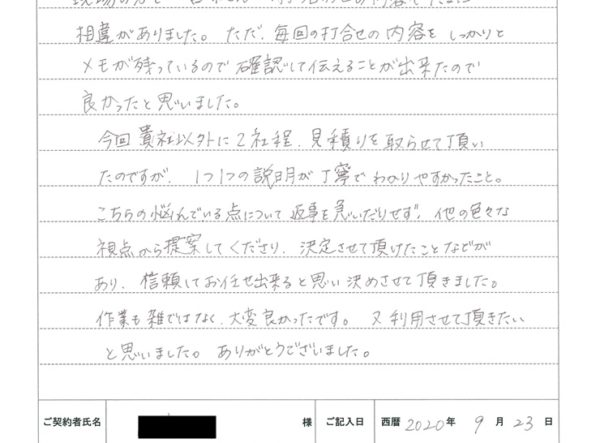 相違がありました。ただ、毎回の打合せの内容をしっかりと
メモが残っているので確認して伝えることが出来たので
良かったと思いました。
今回貴社以外に2社程、見積りを取らせて頂い
たのですが、1つ1つの説明が丁寧でわかりやすかったこと。
こちらの悩んでいる点について返事を急いだりせず、他の色々な
視点から提案してくださり、決定させて頂けたことなどが
あり、信頼してお任せ出来ると思い決めさせて頂きました。
作業も雑ではなく、大変良かったです。又利用させて頂きたい
と思いました。ありがとうございました。
ご契約者氏名 様 ご記入日 西暦 2020年 9月 23日